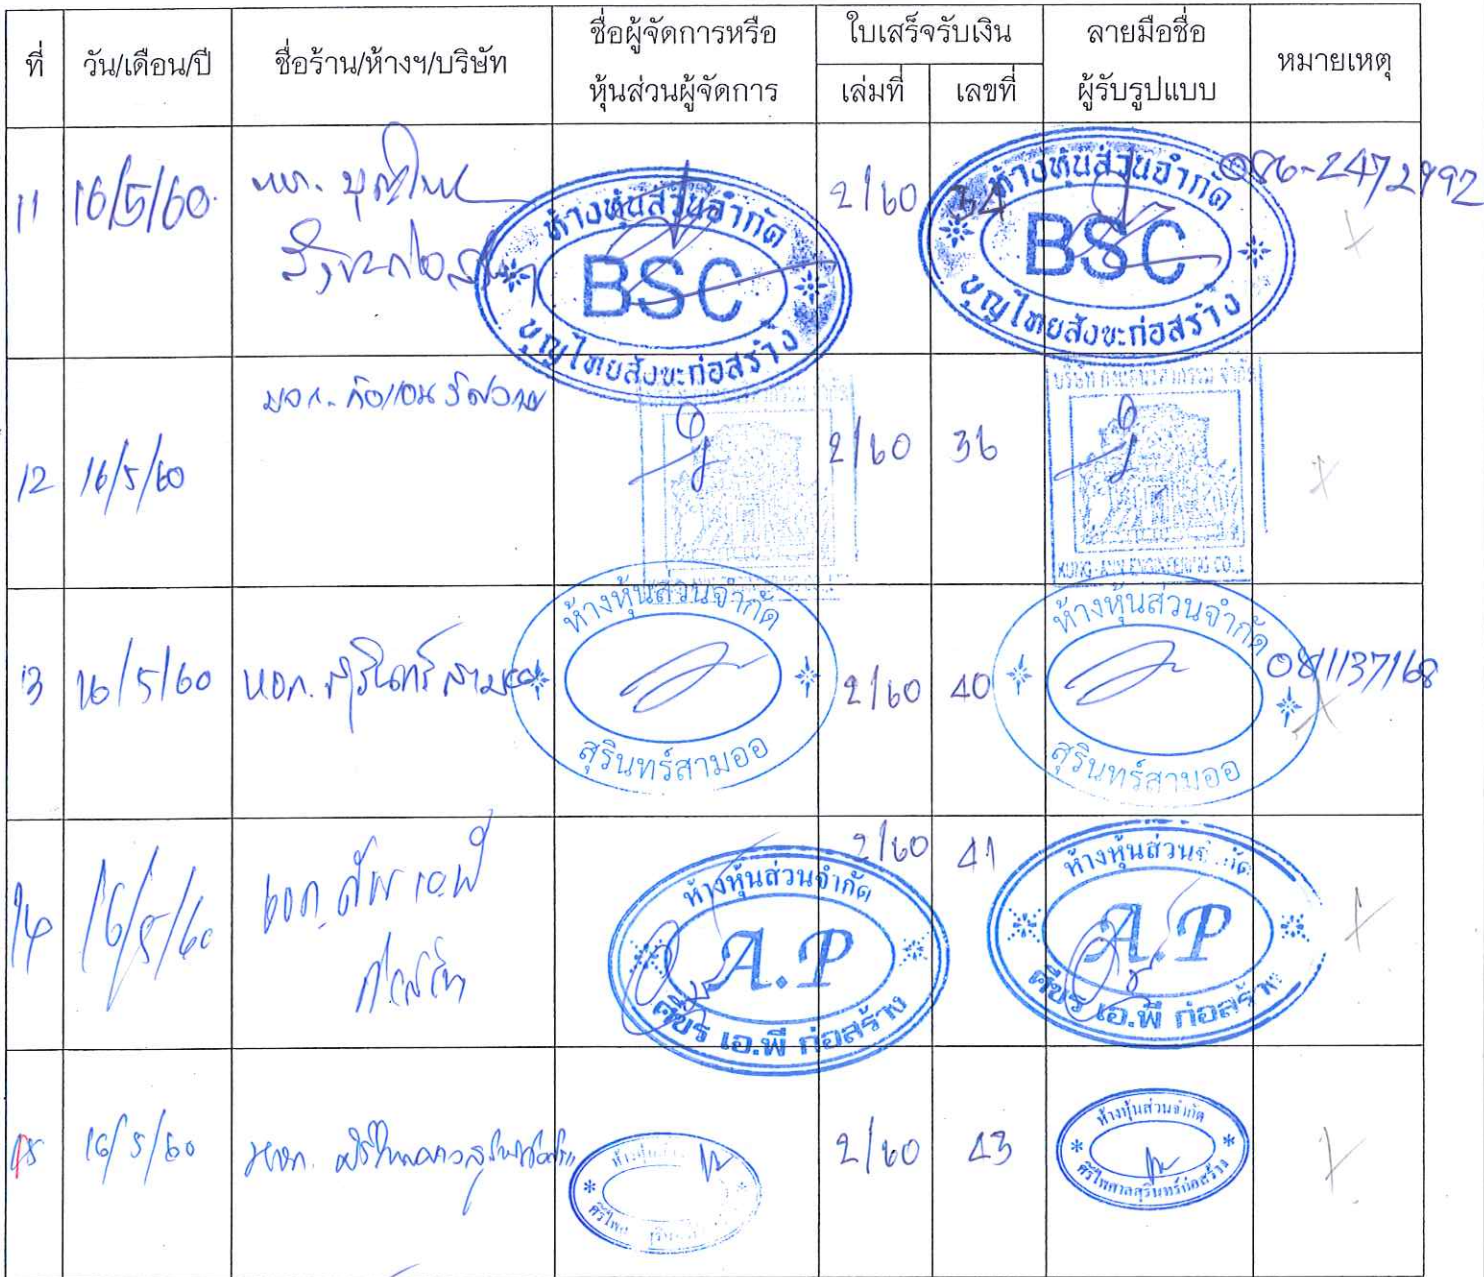 ที่
วัน/เดือน/ปี
ชื่อร้าน/ห้างฯ/บริษัท
ชื่อผู้จัดการหรือ
หุ้นส่วนผู้จัดการ
ใบเสร็จรับเงิน
เล่มที่
เลขที่
ลายมือชื่อ
ผู้รับรูปแบบ
หมายเหตุ
11
16/5/60
หจก. บุญไทย
สังขะก่อสร้าง
ห้างหุ้นส่วนจำกัด
BSC
บุญไทยสังขะก่อสร้าง
2/60
34
ห้างหุ้นส่วนจำกัด
BSC
บุญไทยสังขะก่อสร้าง
086-2472992
12
16/5/60
2/60
36
13
16/5/60
หจก. สุรินทร์สามออ
ห้างหุ้นส่วนจำกัด
สุรินทร์สามออ
2/60
40
ห้างหุ้นส่วนจำกัด
สุรินทร์สามออ
14
16/5/60
หจก.
ห้างหุ้นส่วนจำกัด
A.P
ศิขร เอ.พี ก่อสร้าง
2/60
41
ห้างหุ้นส่วนจำกัด
A.P
ศิขร เอ.พี ก่อสร้าง
15
16/5/60
หจก.
2/60
43
ห้างหุ้นส่วนจำกัด
ศิริไพศาลสุรินทร์ก่อสร้าง